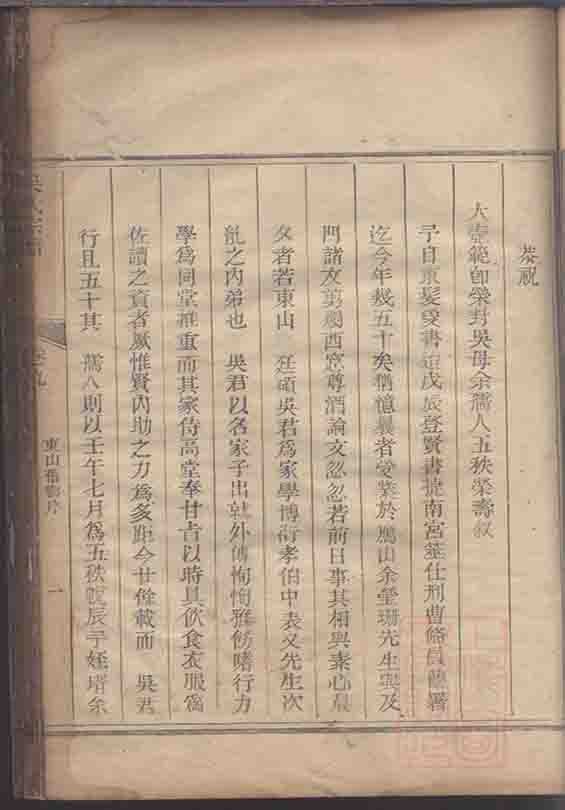 恭祝
大壼範卽榮封吳母余孺人五秩榮壽敘
予自束髮受書迨戊辰登賢書捷南宮筮仕刑曹
迄今年幾五十矣猶憶曩者受業於鳳山余瑩珊先生與及
門諸友第幾西窓尊酒論文忽忽若前日事其相與素心晨
夕者若東山 廷碩吳君爲家學博衍孝伯中表又先生次
誼之內弟也 吳君以名家子出就外傅恂恂雅飭嗜行力
學爲同堂推重而其家侍高堂奉甘旨以時具飲食衣服爲
佐讀之資者厥惟賢內助之力爲多距今廿餘載而 吳君
行且五十其 孺人則以壬午七月爲五秩帨辰予姪壻余
卷九
一